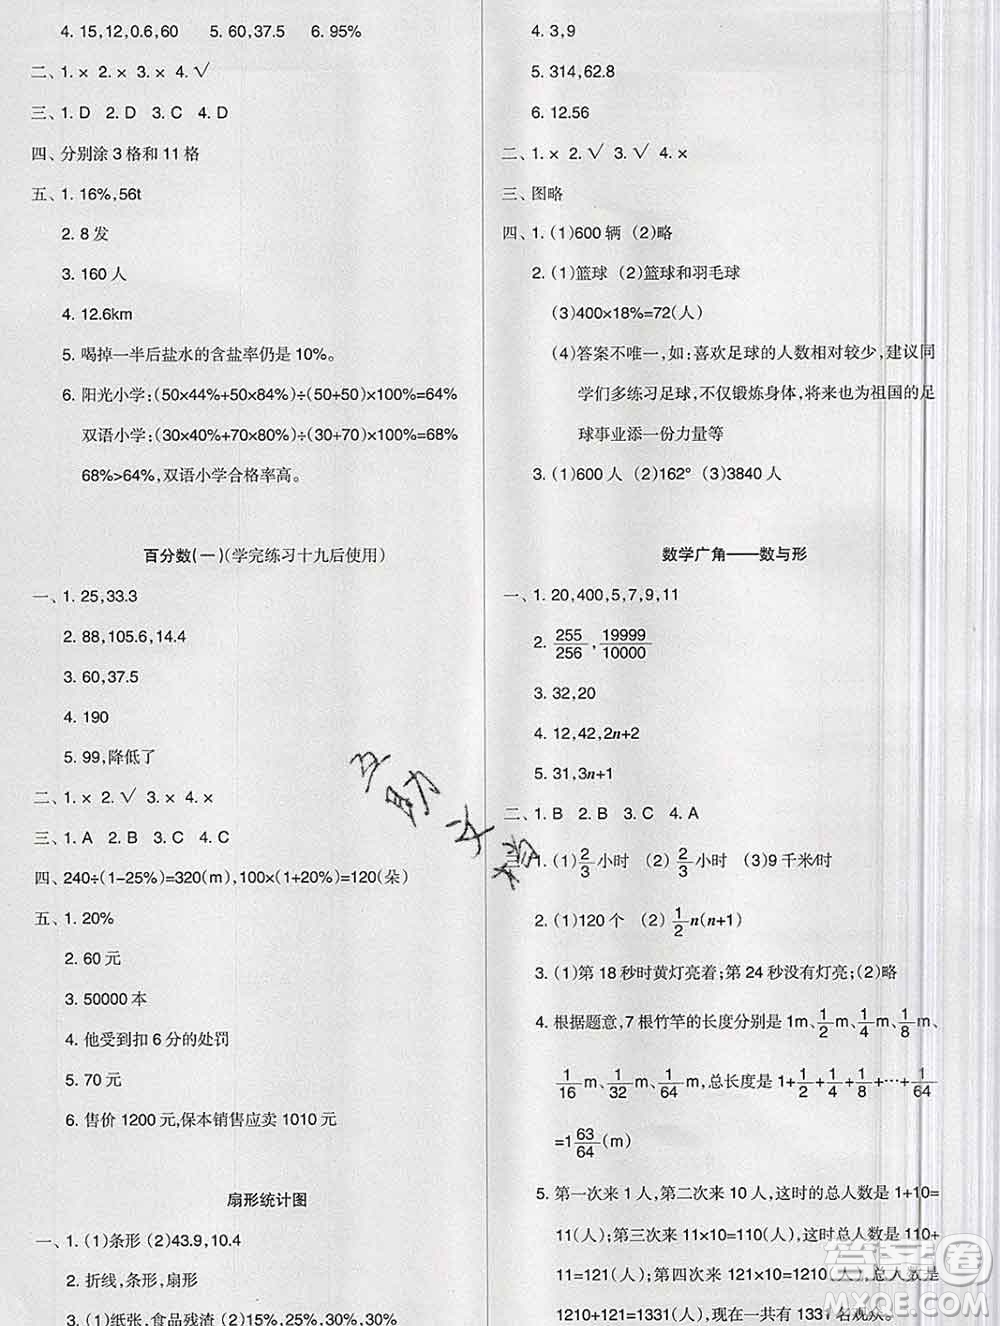 4. 15,12,0.6,60　5. 60,37.5　6. 95%
二、1. × 2. × 3. × 4. √
三、1. D　2. D　3. C　4. D
四、分别涂 3 格和 11 格
五、1. 16%,56t
2. 8 发
3. 160 人
4. 12.6km
5. 喝掉一半后盐水的含盐率仍是 10%。
6. 阳光小学:(50×44%+50×84%)÷(50+50)×100%=64%
双语小学:(30×40%+70×80%)÷(30+70)×100%=68%
68%>64%,双语小学合格率高。
百分数(一)(学完练习十九后使用)
一、1. 25,33.3
2. 88,105.6,14.4
3. 60,37.5
4. 190
5. 99,降低了
二、1. × 2. √ 3. × 4. ×
三、1. A　2. B　3. C　4. C
四、240÷(1-25%)=320(m),100×(1+20%)=120(朵)
五、1. 20%
2. 60 元
3. 50000 本
4. 他受到扣 6 分的处罚
5. 70 元
6. 售价 1200 元,保本销售应卖 1010 元
扇形统计图
一、1. (1)条形 (2)43.9,10.4
2. 折线,条形,扇形
3. (1)纸张,食品残渣 (2)15%,25%,30%,30%
4. 3,9
5. 314,62.8
6. 12.56
二、1. × 2. √ 3. √ 4. ×
三、图略
四、1. (1)600 辆 (2)略
2. (1)篮球 (2)篮球和羽毛球
(3)400×18%=72(人)
(4)答案不唯一,如:喜欢足球的人数相对较少,建议同
学们多练习足球,不仅锻炼身体,将来也为祖国的足
球事业添一份力量等
3. (1)600 人 (2)162° (3)3840 人
数学广角——数与形
一、1. 20,400,5,7,9,11
2. 255/256,19999/10000
3. 32,20
4. 12,42,2n+2
5. 31,3n+1
二、1. B　2. B　3. C　4. A
1. (1)2/3小时　(2)2/3小时　(3)9 千米/时
2. (1)120 个　(2)1/2n(n+1)
3. (1)第 18 秒时黄灯亮着;第 24 秒没有灯亮;(2)略
4. 根据题意,7 根竹竿的长度分别是 1m、1/2m、1/4m、1/8m、
1/16m、1/32m、1/64m,总长度是 1+1/2+1/4+1/8+…+1/64
=1 63/64(m)
5. 第一次来 1 人,第二次来 10 人,这时的总人数是 1+10=
11(人);第三次来 11×10=110(人),这时总人数是 110+
11=121(人);第四次来 121×10=1210(人),总人数是
1210+121=1331(人),现在一共有 1331 名观众。
互助文档
答案圈